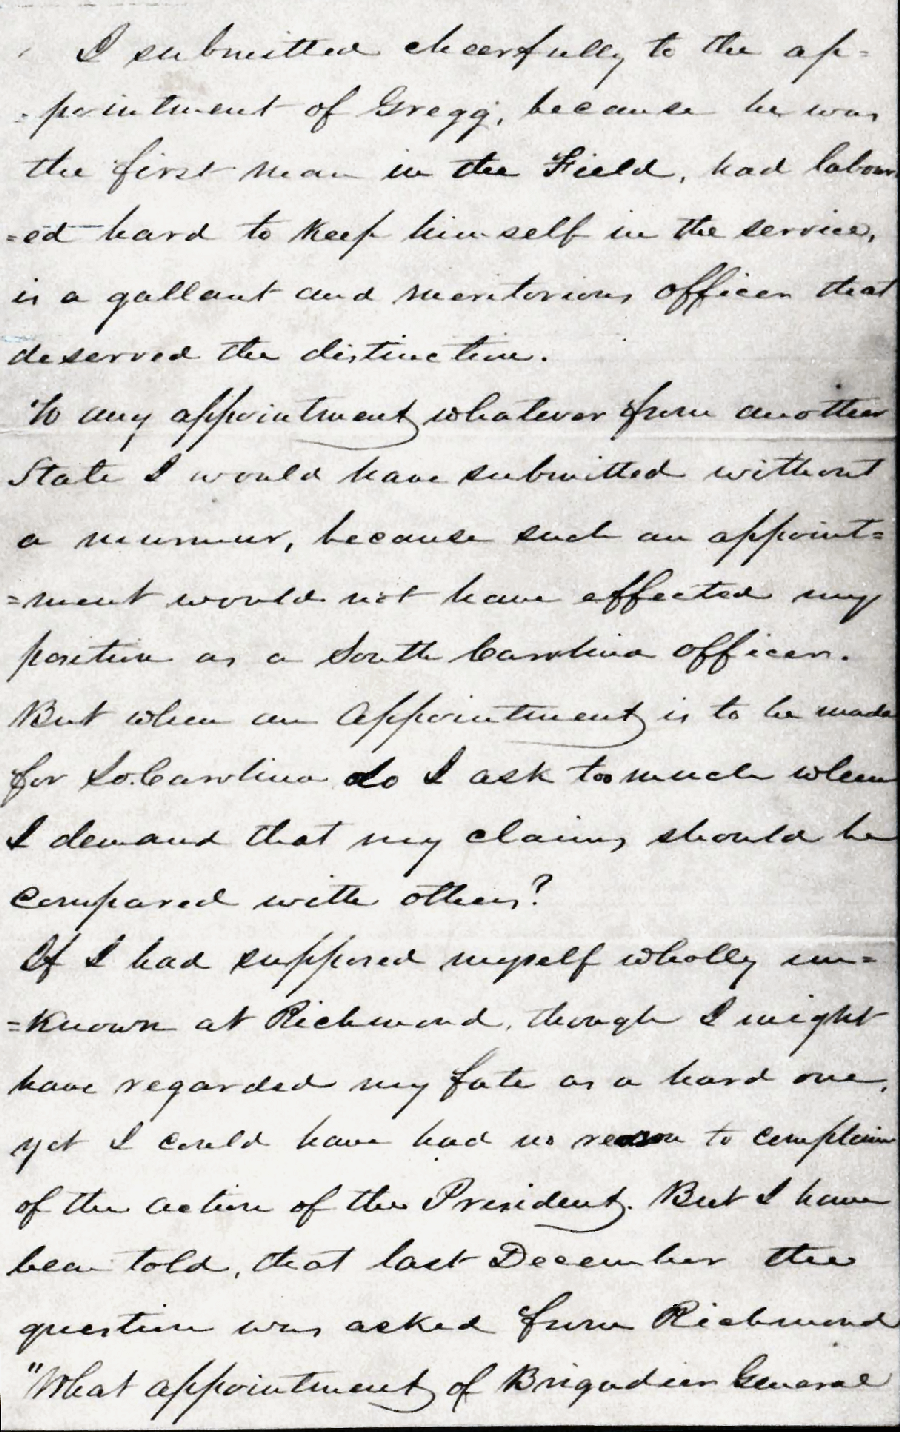 I submitted cheerfully to the ap=
=pointment of Gregg, because he was
the first man in the Field, had labour
=ed hard to keep himself in the service,
is a gallant and meritorious officer that
deserved the distinction.
To any appointment whatever from another
State I would have submitted without
a murmur, because such an appoint=
=ment would not have effected my
position as a South Carolina officer.
But when an Appointment is to be made
for So. Carolina do I ask too much when
I demand that my claims should be
compared with others?
If I had supposed myself wholly un=
=known at Richmond, though I might
have regarded my fate as a hard one,
yet I could have had no reason to complain
of the action of the President. But I have
been told, that last December the
question was asked from Richmond
"What appointment of Brigadier General